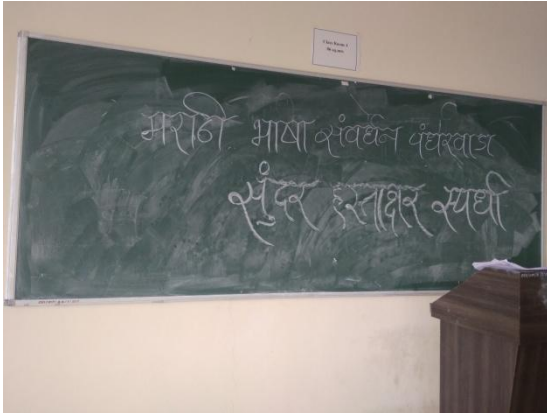 Class Room-3
मराठी भाषा संवर्धन पंधरवाडा
सुंदर हस्ताक्षर स्पर्धा